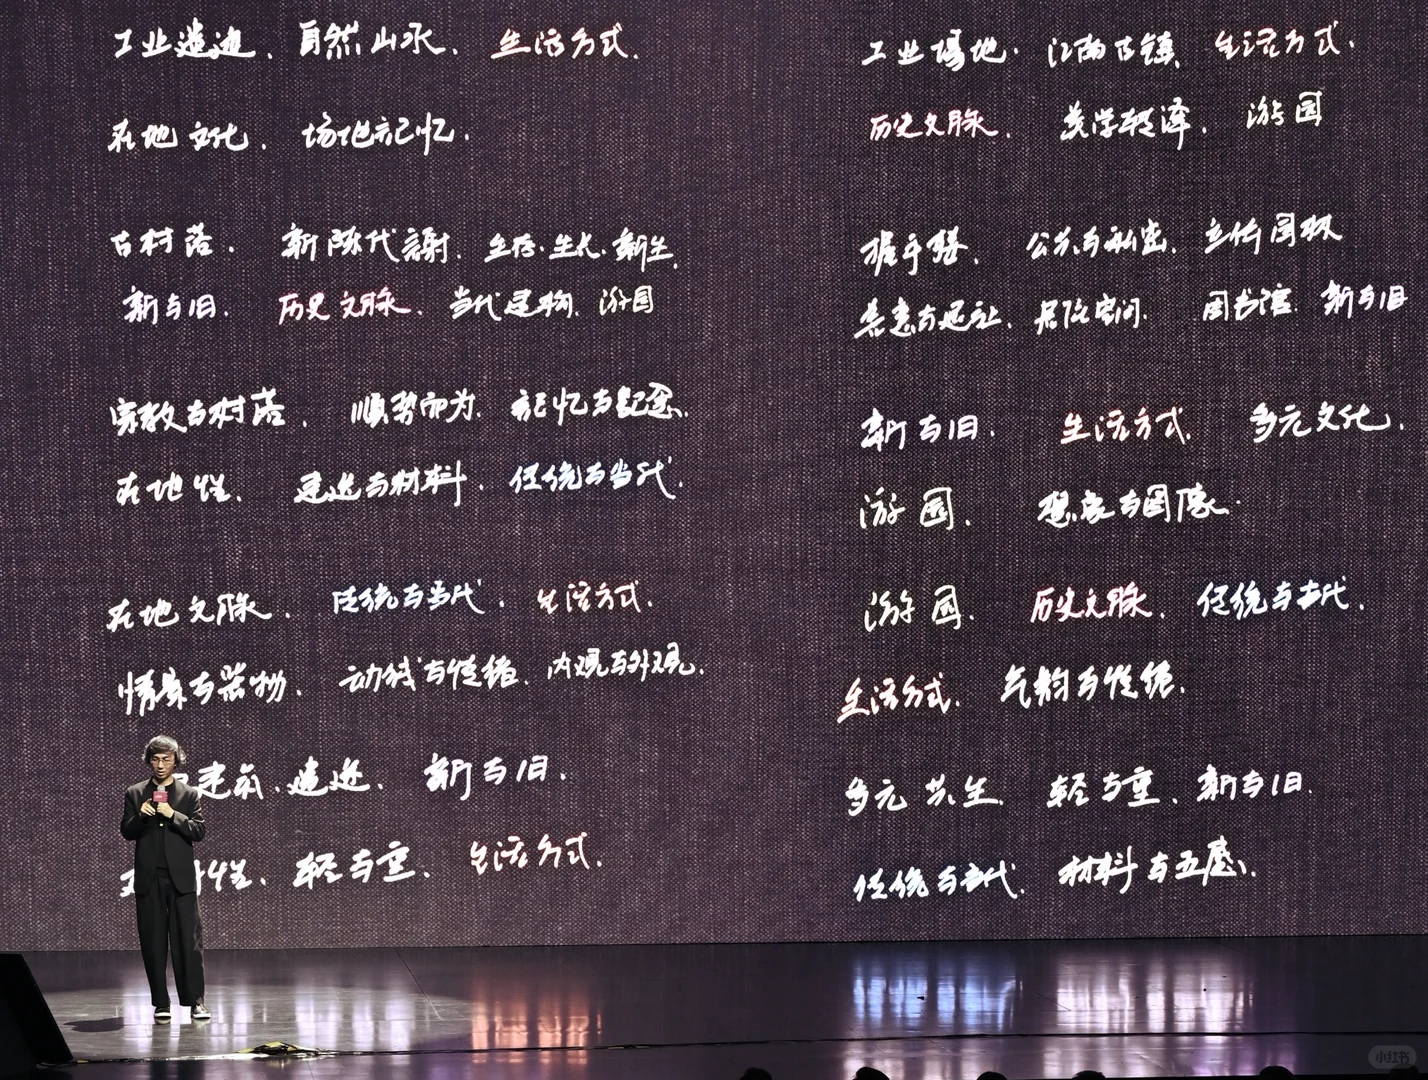 工业遗迹、自然山水、生活方式、
在地文化、场地记忆、
古村落、新陈代谢、生存、生长、新生、
新与旧、历史文脉、当代建构、游园
宗教与村落、顺势而为、记忆与纪念、
在地性、建造与材料、传统与当代、
在地文脉、传统与当代、生活方式、
情景与器物、动线与性格、内观与外观、
建筑、遗迹、新与旧、
性、轻与重、生活方式、
工业场地、江南古镇、生活方式、
历史文脉、美学转译、游园
握手楼、公共与私密、立体园林
居住空间、图书馆、新与旧
新与旧、生活方式、多元文化、
游园、想象与图像、
游园、历史文脉、传统与当代、
生活方式、气韵与性格、
多元共生、轻与重、新与旧、
传统与当代、材料与五感、
小红书